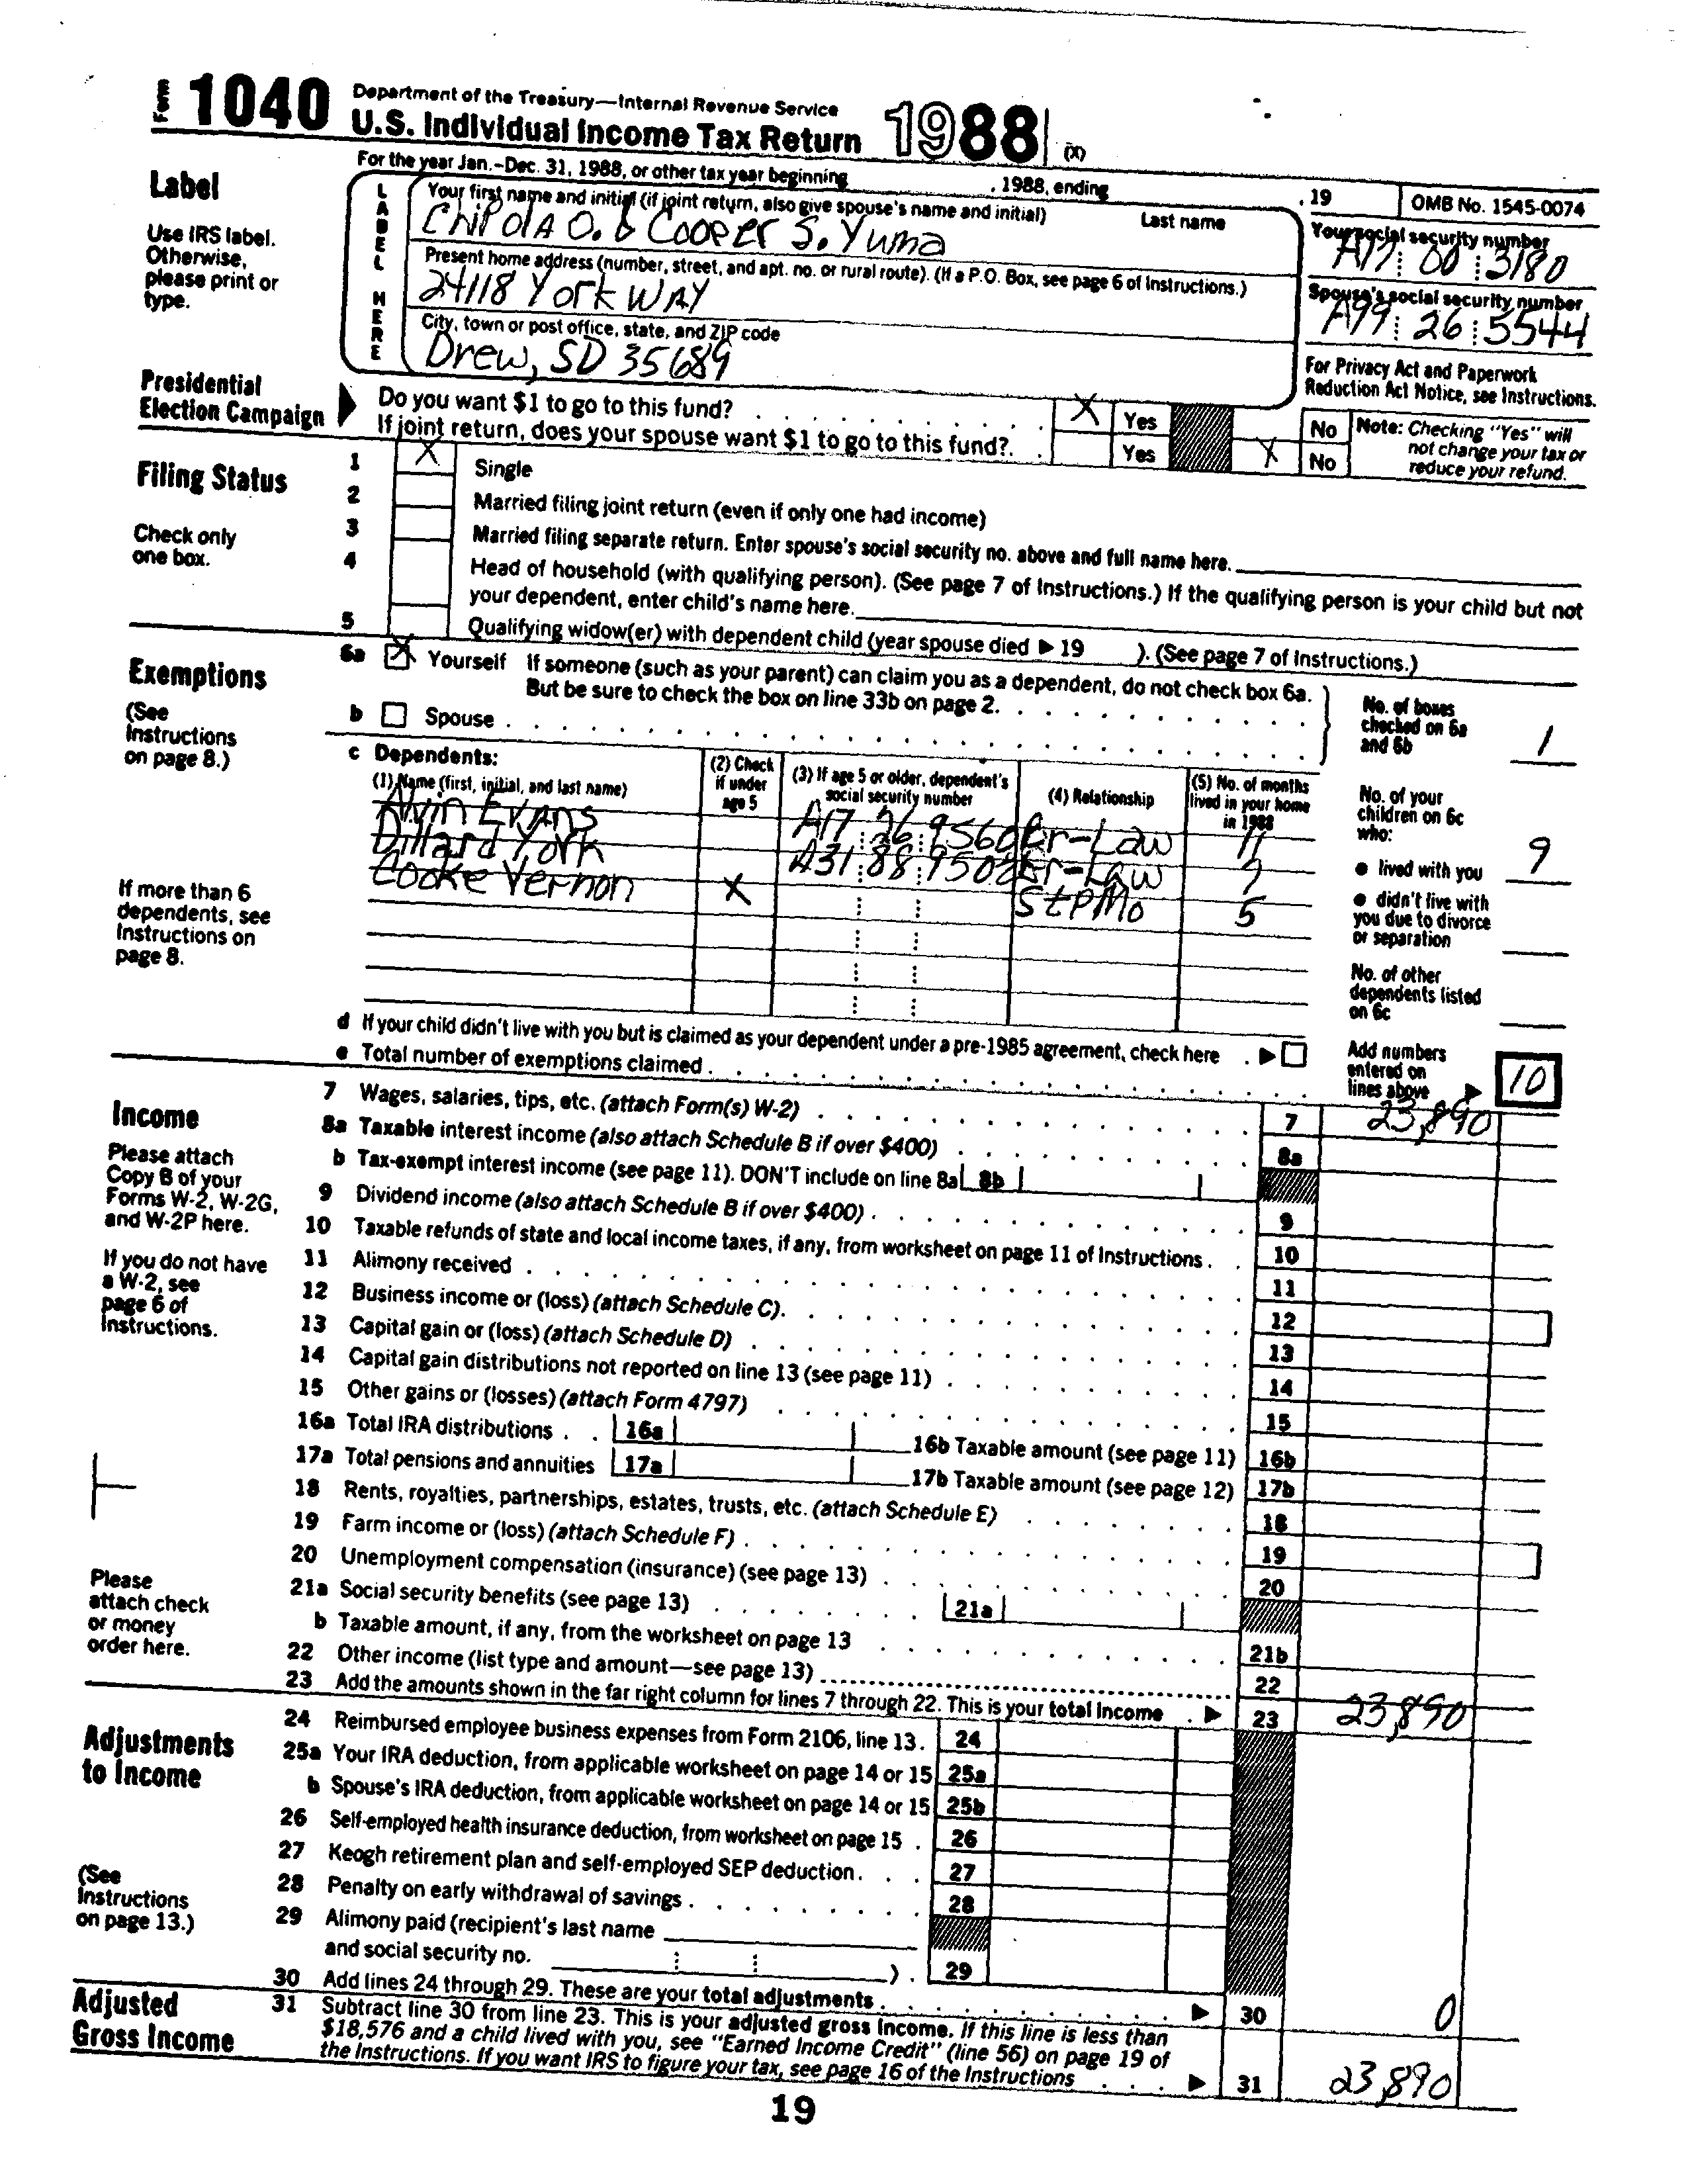 Form 1040 Department of the Treasury—Internal Revenue Service
U.S. Individual Income Tax Return 1988 (X)
For the year Jan.–Dec. 31, 1988, or other tax year beginning , 1988, ending , 19 OMB No. 1545-0074
Label
Use IRS label.
Otherwise,
please print or
type.
LABEL HERE
Your first name and initial (if joint return, also give spouse's name and initial) Last name
Chipola O. & Cooper S. Yuma
Your social security number
A17 00 3180
Present home address (number, street, and apt. no. or rural route). (If a P.O. Box, see page 6 of Instructions.)
24118 York WAY
Spouse's social security number
A99 26 5544
City, town or post office, state, and ZIP code
Drew, SD 35689
For Privacy Act and Paperwork
Reduction Act Notice, see Instructions.
Presidential
Election Campaign
Do you want $1 to go to this fund? X Yes No
If joint return, does your spouse want $1 to go to this fund?. Yes X No
Note: Checking "Yes" will
not change your tax or
reduce your refund.
Filing Status
Check only
one box.
1 X Single
2 Married filing joint return (even if only one had income)
3 Married filing separate return. Enter spouse's social security no. above and full name here.
4 Head of household (with qualifying person). (See page 7 of Instructions.) If the qualifying person is your child but not
your dependent, enter child's name here.
5 Qualifying widow(er) with dependent child (year spouse died ▶ 19 ). (See page 7 of Instructions.)
Exemptions
(See
Instructions
on page 8.)
If more than 6
dependents, see
Instructions on
page 8.
6a X Yourself If someone (such as your parent) can claim you as a dependent, do not check box 6a.
But be sure to check the box on line 33b on page 2.
b Spouse
No. of boxes
checked on 6a
and 6b 1
c Dependents:
(1) Name (first, initial, and last name) (2) Check if under age 5 (3) If age 5 or older, dependent's social security number (4) Relationship (5) No. of months lived in your home in 1988
Alvin Evans A17 26 9560 Br-Law 11
Dillard York A31 88 9502 Br-Law 7
Cooke Vernon X StPMo 5
No. of your
children on 6c
who:
● lived with you 9
● didn't live with
you due to divorce
or separation
No. of other
dependents listed
on 6c
d If your child didn't live with you but is claimed as your dependent under a pre-1985 agreement, check here ▶
e Total number of exemptions claimed
Add numbers
entered on
lines above ▶ 10
Income
Please attach
Copy B of your
Forms W-2, W-2G,
and W-2P here.
If you do not have
a W-2, see
page 6 of
Instructions.
Please
attach check
or money
order here.
7 Wages, salaries, tips, etc. (attach Form(s) W-2) 7 23,890
8a Taxable interest income (also attach Schedule B if over $400) 8a
b Tax-exempt interest income (see page 11). DON'T include on line 8a 8b
9 Dividend income (also attach Schedule B if over $400) 9
10 Taxable refunds of state and local income taxes, if any, from worksheet on page 11 of Instructions 10
11 Alimony received 11
12 Business income or (loss) (attach Schedule C). 12
13 Capital gain or (loss) (attach Schedule D) 13
14 Capital gain distributions not reported on line 13 (see page 11) 14
15 Other gains or (losses) (attach Form 4797) 15
16a Total IRA distributions 16a 16b Taxable amount (see page 11) 16b
17a Total pensions and annuities 17a 17b Taxable amount (see page 12) 17b
18 Rents, royalties, partnerships, estates, trusts, etc. (attach Schedule E) 18
19 Farm income or (loss) (attach Schedule F) 19
20 Unemployment compensation (insurance) (see page 13) 20
21a Social security benefits (see page 13) 21a
b Taxable amount, if any, from the worksheet on page 13 21b
22 Other income (list type and amount—see page 13) 22
23 Add the amounts shown in the far right column for lines 7 through 22. This is your total income ▶ 23 23,890
Adjustments
to Income
(See
Instructions
on page 13.)
24 Reimbursed employee business expenses from Form 2106, line 13. 24
25a Your IRA deduction, from applicable worksheet on page 14 or 15 25a
b Spouse's IRA deduction, from applicable worksheet on page 14 or 15 25b
26 Self-employed health insurance deduction, from worksheet on page 15 26
27 Keogh retirement plan and self-employed SEP deduction 27
28 Penalty on early withdrawal of savings 28
29 Alimony paid (recipient's last name
and social security no. ). 29
30 Add lines 24 through 29. These are your total adjustments ▶ 30 0
Adjusted
Gross Income
31 Subtract line 30 from line 23. This is your adjusted gross income. If this line is less than
$18,576 and a child lived with you, see "Earned Income Credit" (line 56) on page 19 of
the Instructions. If you want IRS to figure your tax, see page 16 of the Instructions ▶ 31 23,890
19